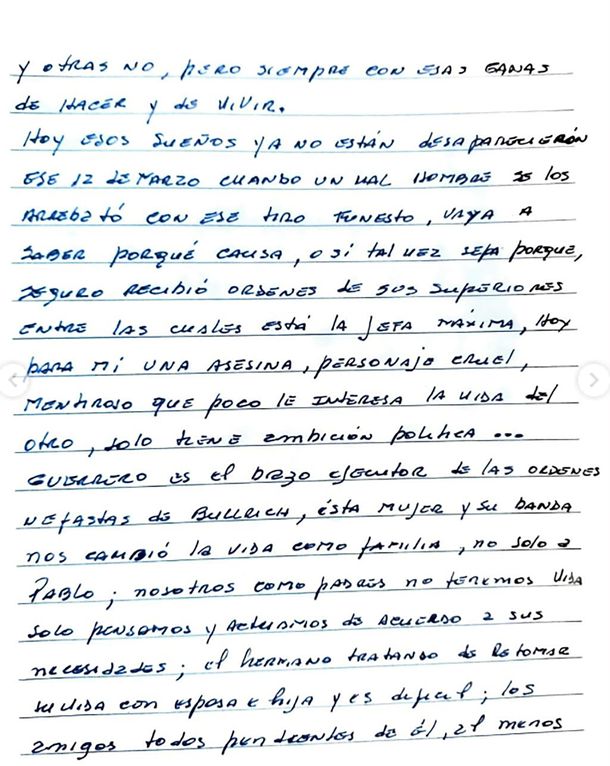 Y OTRAS NO, PERO SIEMPRE CON ESAS GANAS
DE HACER Y DE VIVIR.
HOY ESOS SUEÑOS YA NO ESTÁN DESAPARECIERÓN
ESE 12 DE MARZO CUANDO UN MAL HOMBRE SE LOS
ARREBATÓ CON ESE TIRO FUNESTO, VAYA A
SABER PORQUÉ CAUSA, O SI TAL VEZ SEPA PORQUE,
SEGURO RECIBIÓ ORDENES DE SUS SUPERIORES
ENTRE LAS CUALES ESTÁ LA JEFA MÁXIMA, HOY
PARA MI UNA ASESINA, PERSONAJE CRUEL,
MENTIROSO QUE POCO LE INTERESA LA VIDA DEL
OTRO, SOLO TIENE AMBICIÓN POLITICA ...
GUERRERO ES EL BRAZO EJECUTOR DE LAS ORDENES
NEFASTAS DE BULLRICH, ÉSTA MUJER Y SU BANDA
NOS CAMBIÓ LA VIDA COMO FAMILIA, NO SOLO A
PABLO; NOSOTROS COMO PADRES NO TENEMOS VIDA
SOLO PENSAMOS Y ACTUAMOS DE ACUERDO A SUS
NECESIDADES; EL HERMANO TRATANDO DE RETOMAR
SU VIDA CON ESPOSA E HIJA Y ES DIFICIL; LOS
AMIGOS TODOS PENDIENTES DE ÉL, AL MENOS